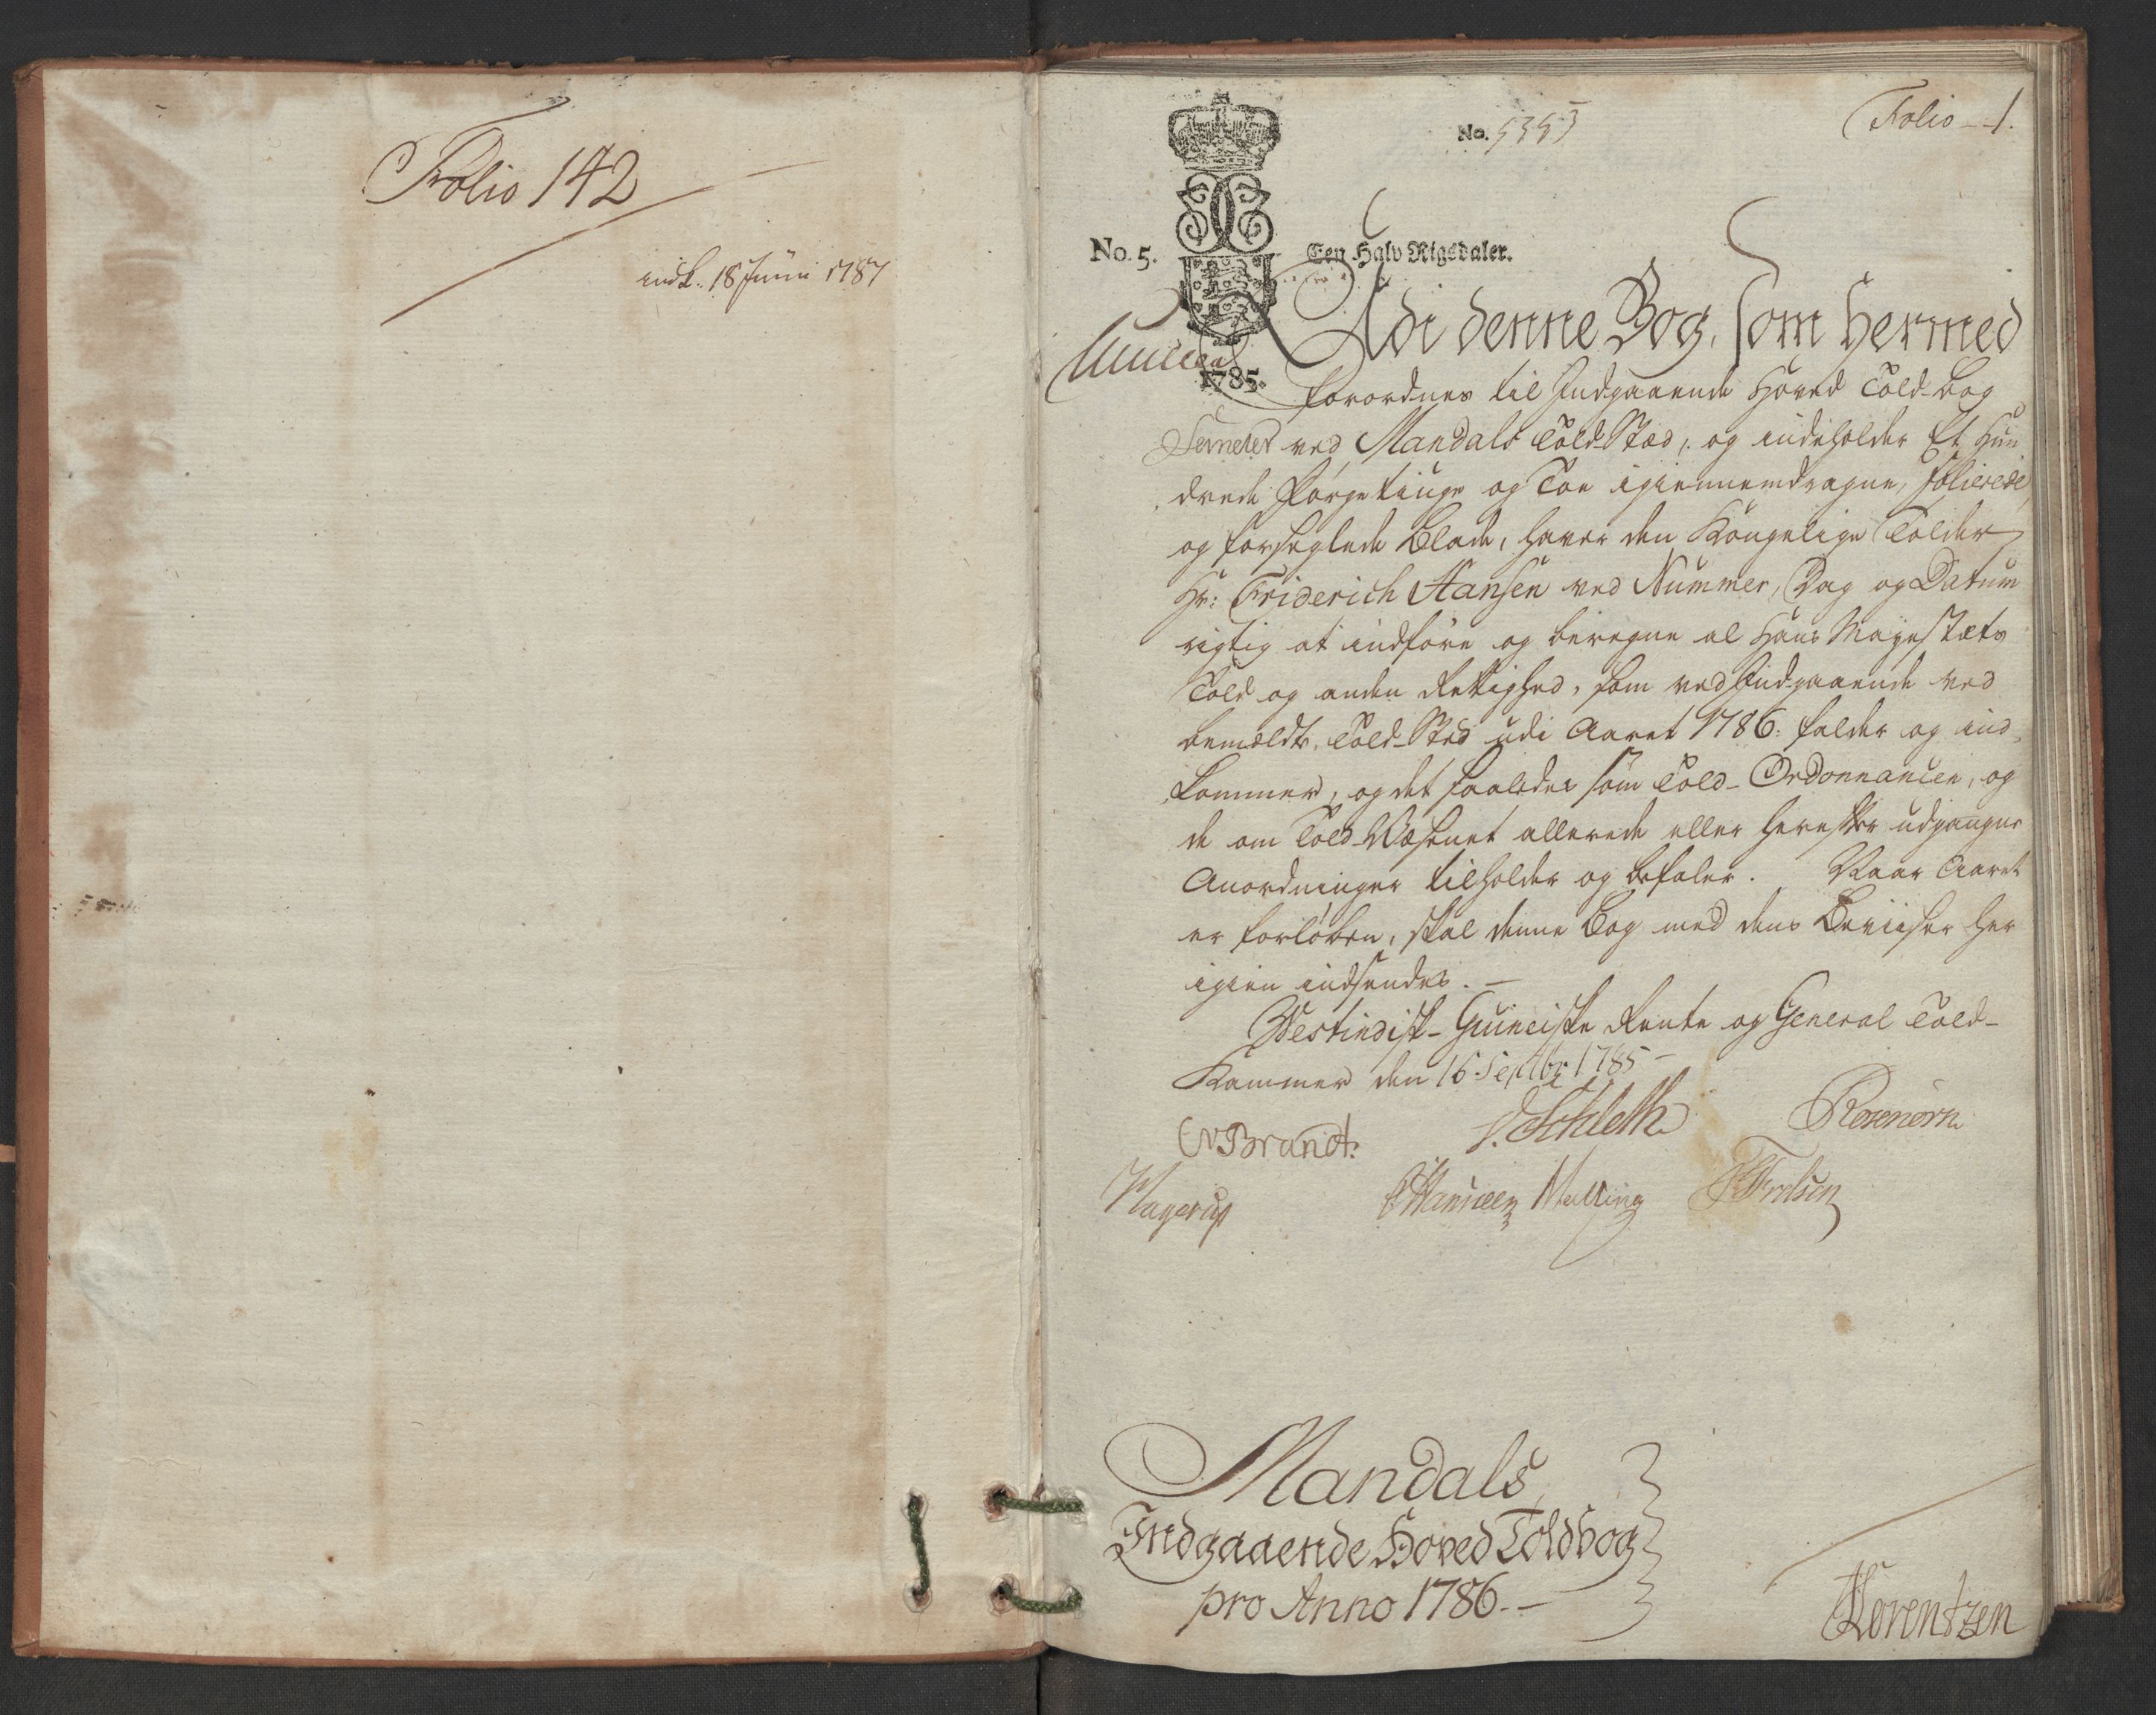 Folio 142
indk. 18 Junii 1787
No. 5353
Folio 1.
No. 5.
Een Halv Rigsdaler.
1785.
Udi denne Bog, som hermed
forordnes til Indgaaende Hoved Told-Bog
ved Mandals Told-Stæd, og indeholder Et Hun
drede Førgetiuge og Toe igiennemdragne, folierede
og forseglede Blade, haver den Kongelige Tolder
Hr: Friderich Hansen ved Nummer, Dag og Datum
rigtig at indføre og beregne al Hans Mayestæts
Told og anden Rettighed, som ved Indgaaende ved
bemældte Told-Stæd udi Aaret 1786. falder og ind
kommer, og det saaledes som Told-Ordonnancen, og
de om Told-Væsenet allerede eller herefter udgangne
Anordninger tilholder og befaler. Naar Aaret
er forløben, skal denne Bog med dens Beviiser her
igien indsendes.
Westindisk-Guineiske Rente og General Told-
Kammer den 16. Septbr: 1785
Brandt.
Schleth
Rosenørn
Hagerup
Malling
Mandals
Indgaaende Hoved Toldbog
pro Anno 1786.
Lorentzen